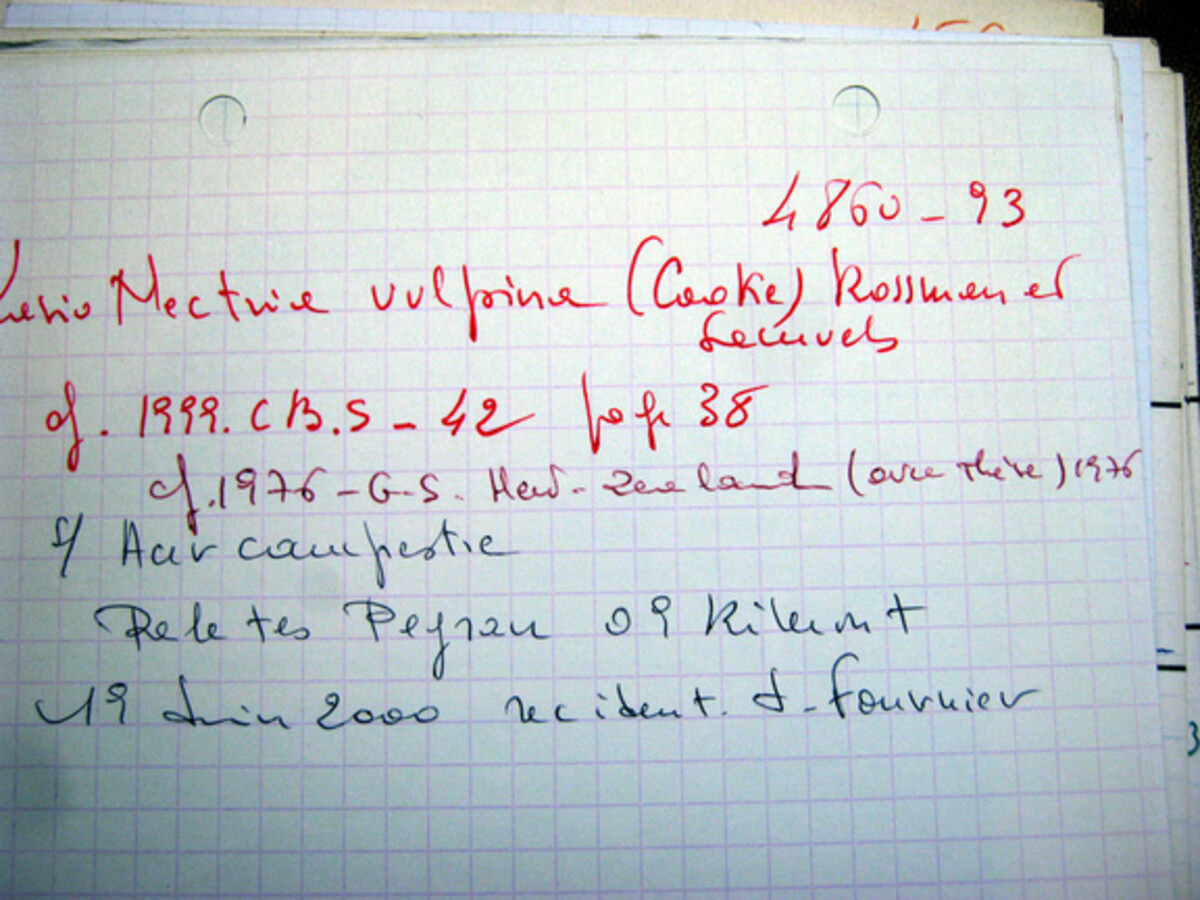 4860-93
Nectria vulpina (Cooke) Rossman et
Samuels
cf. 1999. C B.S - 42 page 38
cf. 1976 - G.S. New-Zealand (avec thèse) 1976
s/ Acer campestre
Peyrau 09 Rimont
19 Juin 2000 rec ident. J. Fournier